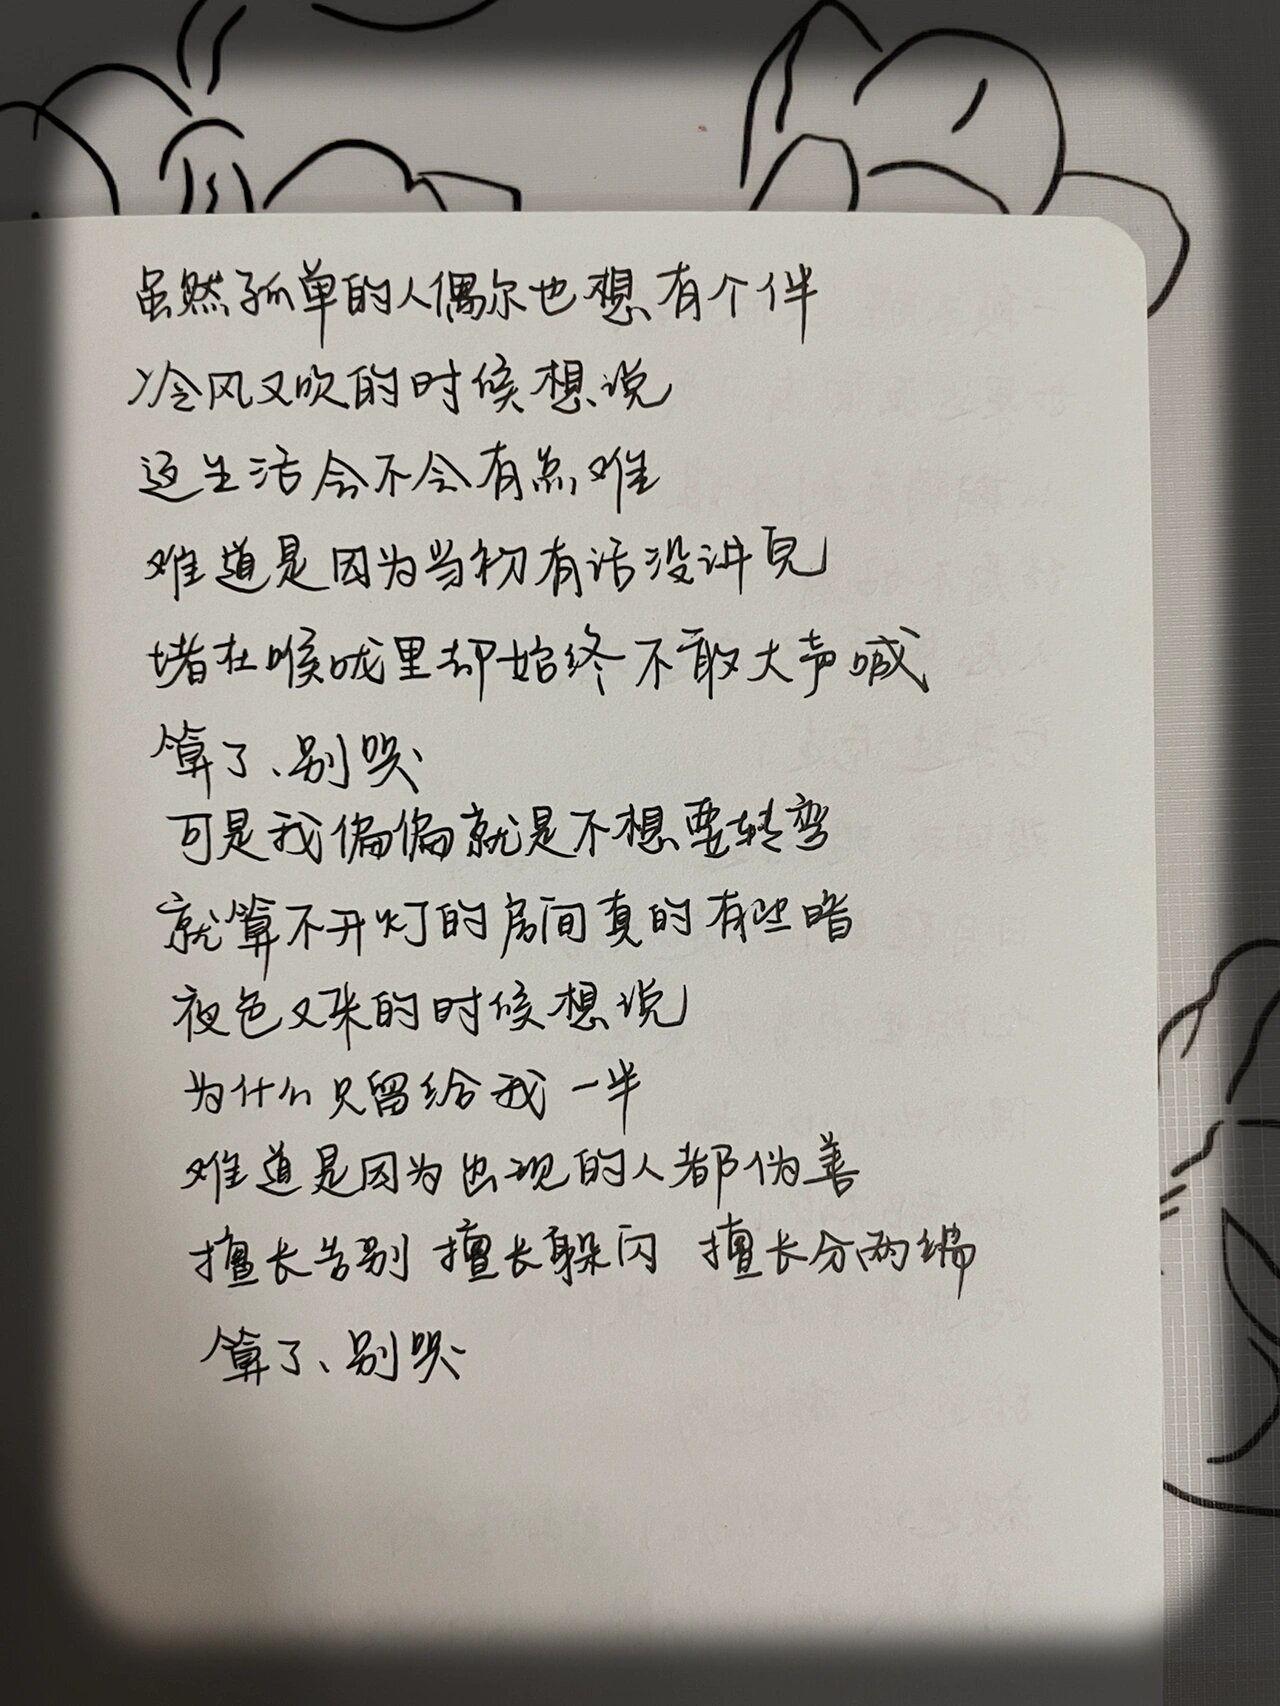 虽然孤单的人偶尔也想有个伴
冷风又吹的时候想说
这生活会不会有点难
难道是因为当初有话没讲完
堵在喉咙里却始终不敢大声喊
算了、别哭
可是我偏偏就是不想要转弯
就算不开灯的房间真的有些暗
夜色又来的时候想说
为什么只留给我一半
难道是因为出现的人都伪善
擅长告别 擅长躲闪 擅长分两端
算了、别哭